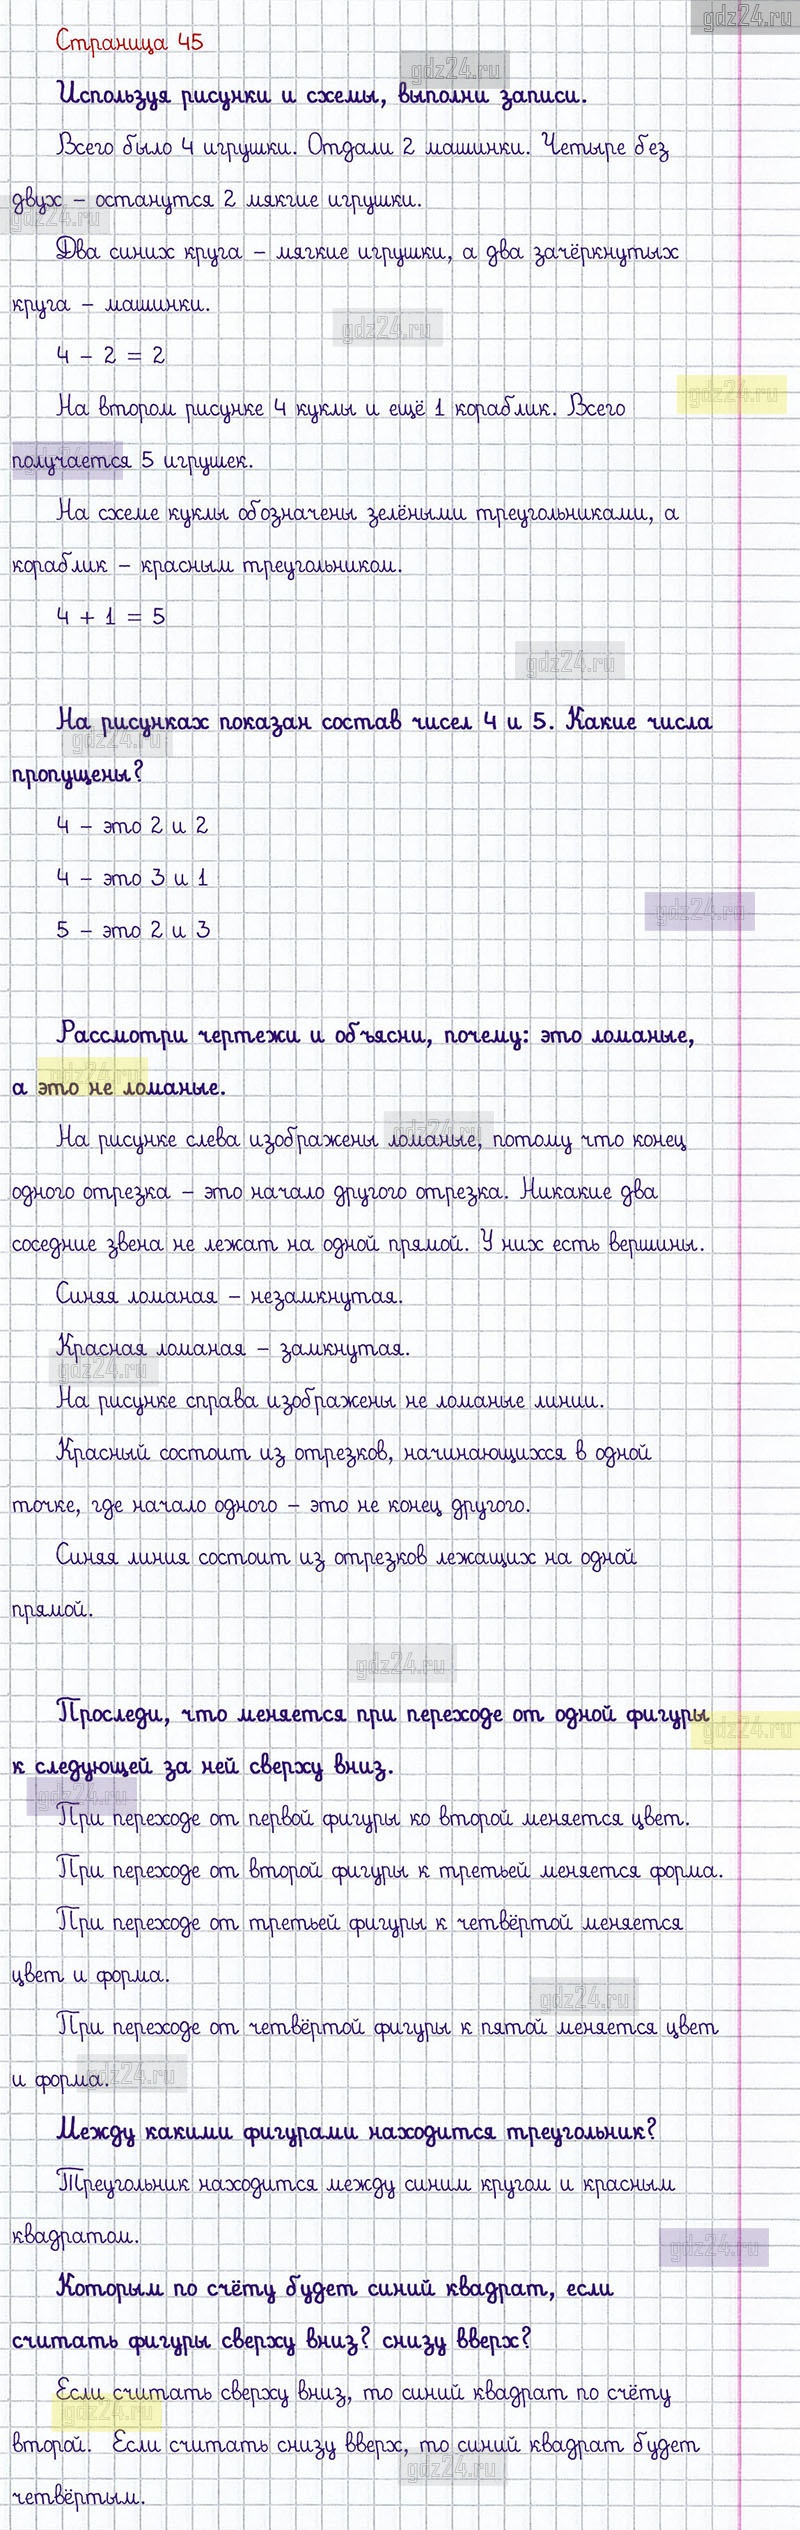 gdz24.ru
Страница 45
gdz24.ru
Используя рисунки и схемы, выполни записи.
Всего было 4 игрушки. Отдали 2 машинки. Четыре без
двух – останутся 2 мягкие игрушки.
gdz24.ru
Два синих круга – мягкие игрушки, а два зачёркнутых
круга – машинки.
gdz24.ru
4 – 2 = 2
gdz24.ru
На втором рисунке 4 куклы и ещё 1 кораблик. Всего
получается 5 игрушек.
На схеме куклы обозначены зелёными треугольниками, а
кораблик – красным треугольником.
4 + 1 = 5
gdz24.ru
На рисунках показан состав чисел 4 и 5. Какие числа
gdz24.ru
пропущены?
4 – это 2 и 2
4 – это 3 и 1
gdz24.ru
5 – это 2 и 3
Рассмотри чертежи и объясни, почему: это ломаные,
gdz24.ru
а это не ломаные.
gdz24.ru
На рисунке слева изображены ломаные, потому что конец
одного отрезка – это начало другого отрезка. Никакие два
соседние звена не лежат на одной прямой. У них есть вершины.
Синяя ломаная – незамкнутая.
Красная ломаная – замкнутая.
gdz24.ru
На рисунке справа изображены не ломаные линии.
Красный состоит из отрезков, начинающихся в одной
точке, где начало одного – это не конец другого.
Синяя линия состоит из отрезков лежащих на одной
прямой.
gdz24.ru
Проследи, что меняется при переходе от одной фигуры
gdz24.ru
к следующей за ней сверху вниз.
gdz24.ru
При переходе от первой фигуры ко второй меняется цвет.
При переходе от второй фигуры к третьей меняется форма.
При переходе от третьей фигуры к четвёртой меняется
цвет и форма.
gdz24.ru
При переходе от четвёртой фигуры к пятой меняется цвет
и форма.
gdz24.ru
Между какими фигурами находится треугольник?
Треугольник находится между синим кругом и красным
квадратом.
gdz24.ru
Которым по счёту будет синий квадрат, если
считать фигуры сверху вниз? снизу вверх?
Если считать сверху вниз, то синий квадрат по счёту
gdz24.ru
второй. Если считать снизу вверх, то синий квадрат будет
gdz24.ru
четвёртым.